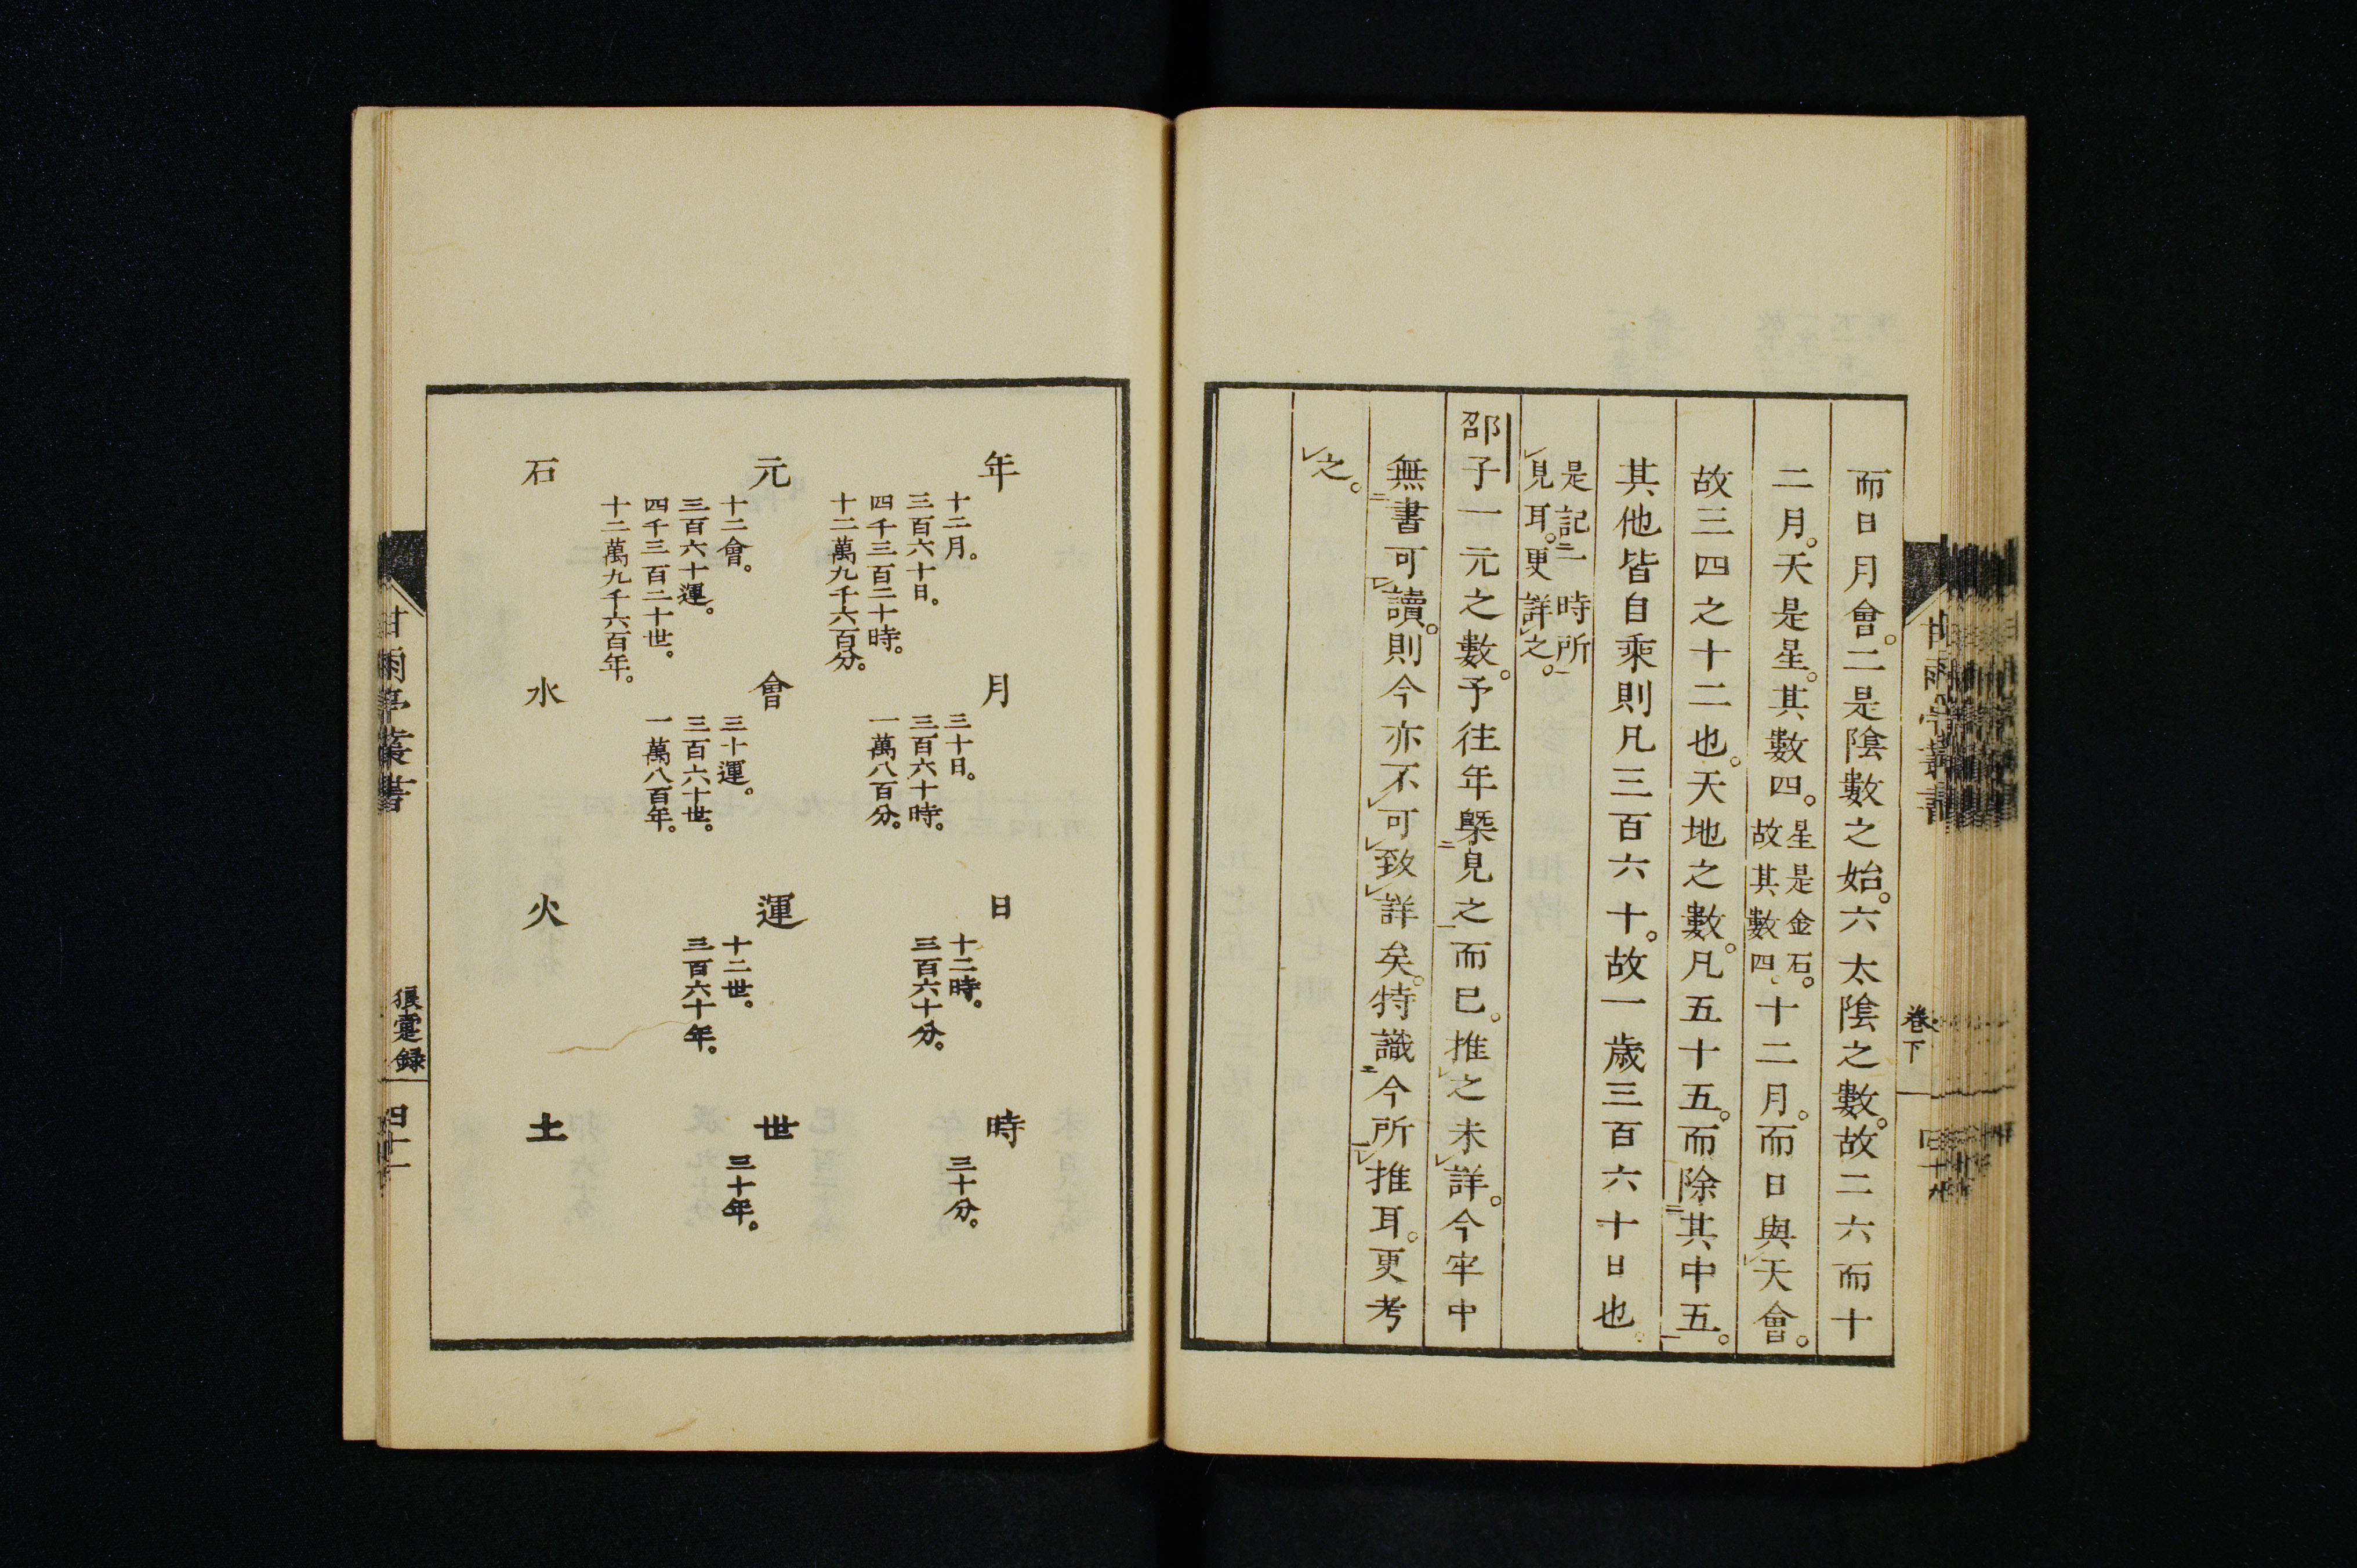 而日月會。二是陰數之始。六太陰之數。故二六而十
二月。天是星。其數四。星是金石。故其數四。十二月。而日與天會。
故三四之十二也。天地之數。凡五十五。而除其中五。
其他皆自乘則凡三百六十。故一歲三百六十日也。
是記一時所
見耳。更詳之。
邵子一元之數。予往年槩見之而已。推之未詳。今牢中
無書可讀。則今亦不可致詳矣。特識今所推耳。更考
之。
卷下
年
十二月。
三百六十日。
四千三百二十時。
十二萬九千六百分。
月
三十日。
三百六十時。
一萬八百分。
日
十二時。
三百六十分。
時
三十分。
元
十二會。
三百六十運。
四千三百二十世。
十二萬九千六百年。
會
三十運。
三百六十世。
一萬八百年。
運
十二世。
三百六十年。
世
三十年。
石
水
火
土
甘雨亭叢書
狼疐録
四十一